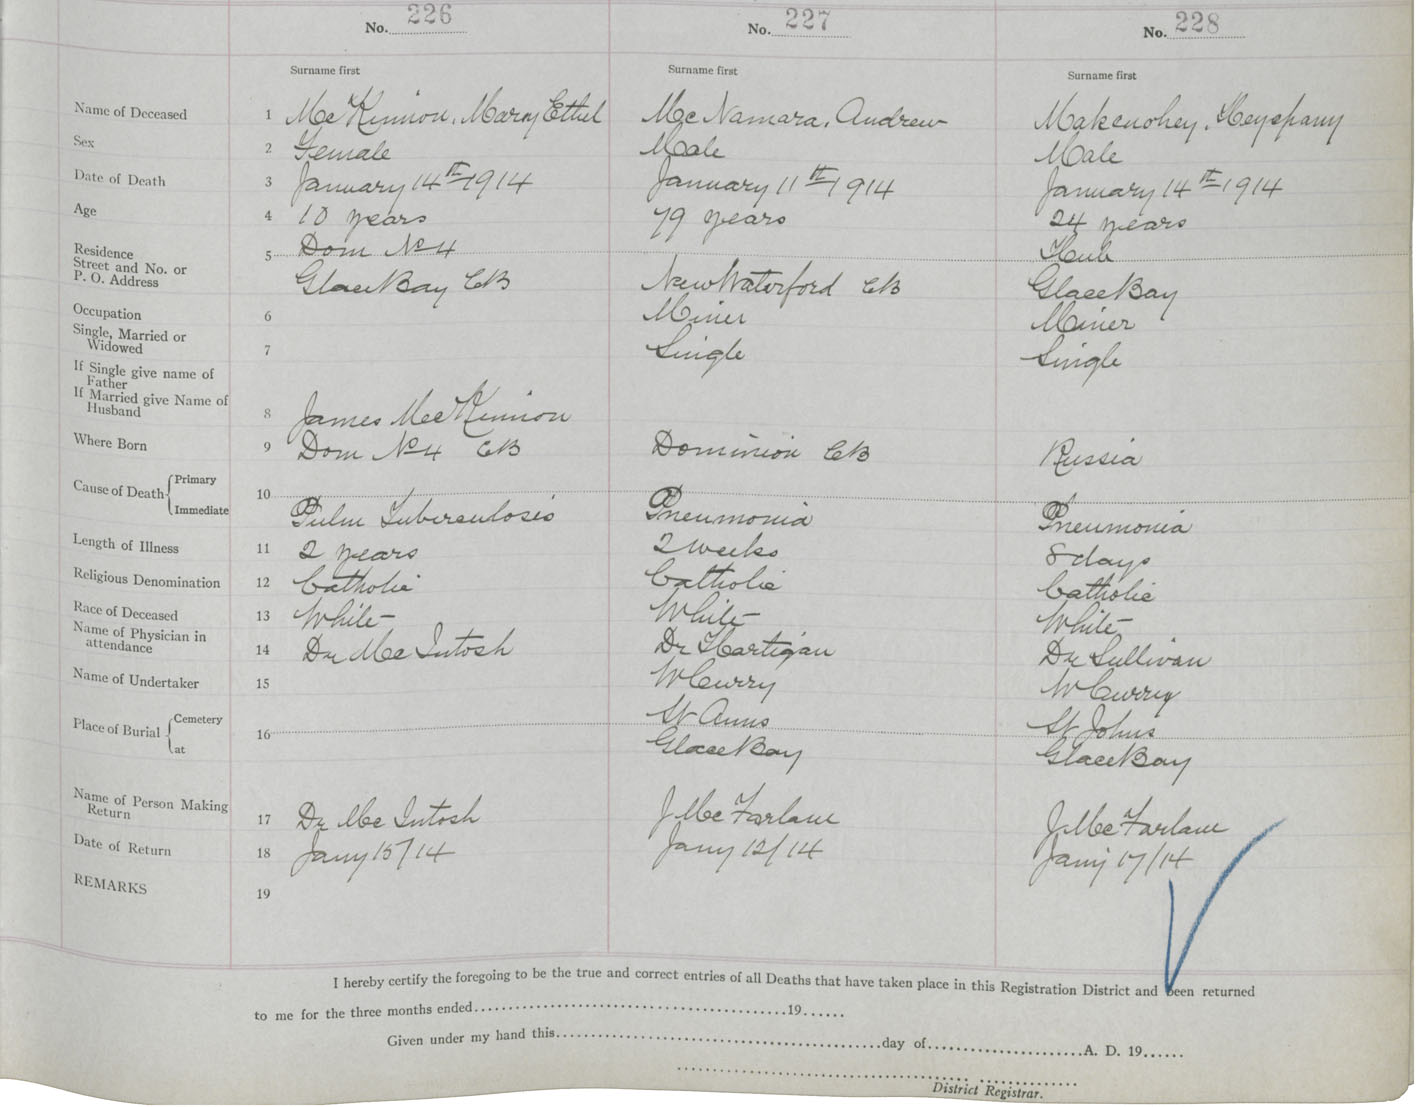 No. 226 No. 227 No. 228
Surname first Surname first Surname first
Name of Deceased 1 McKinnon, Mary Ethel McNamara, Andrew Makenohey, Heyspany
Sex 2 Female Male Male
Date of Death 3 January 14th 1914 January 11th 1914 January 14th 1914
Age 4 10 years 79 years 24 years
Residence 5 Dom No 4 Hub
Street and No. or
P. O. Address Glace Bay CB New Waterford CB Glace Bay
Occupation 6 Miner Miner
Single, Married or
Widowed 7 Single Single
If Single give name of
Father
If Married give Name of
Husband 8 James McKinnon
Where Born 9 Dom No 4 CB Dominion CB Russia
Cause of Death { Primary 10
Immediate Pulm Tuberculosis Pneumonia Pneumonia
Length of Illness 11 2 years 2 weeks 8 days
Religious Denomination 12 Catholic Catholic Catholic
Race of Deceased 13 White White White
Name of Physician in
attendance 14 Dr McIntosh Dr Hartigan Dr Sullivan
Name of Undertaker 15 W Curry W Curry
Place of Burial { Cemetery 16 St Anns St Johns
at Glace Bay Glace Bay
Name of Person Making
Return 17 Dr McIntosh J McFarlane J McFarlane
Date of Return 18 Jany 15/14 Jany 12/14 Jany 17/14
REMARKS 19
I hereby certify the foregoing to be the true and correct entries of all Deaths that have taken place in this Registration District and been returned
to me for the three months ended........19......
Given under my hand this........day of........A. D. 19......
District Registrar.